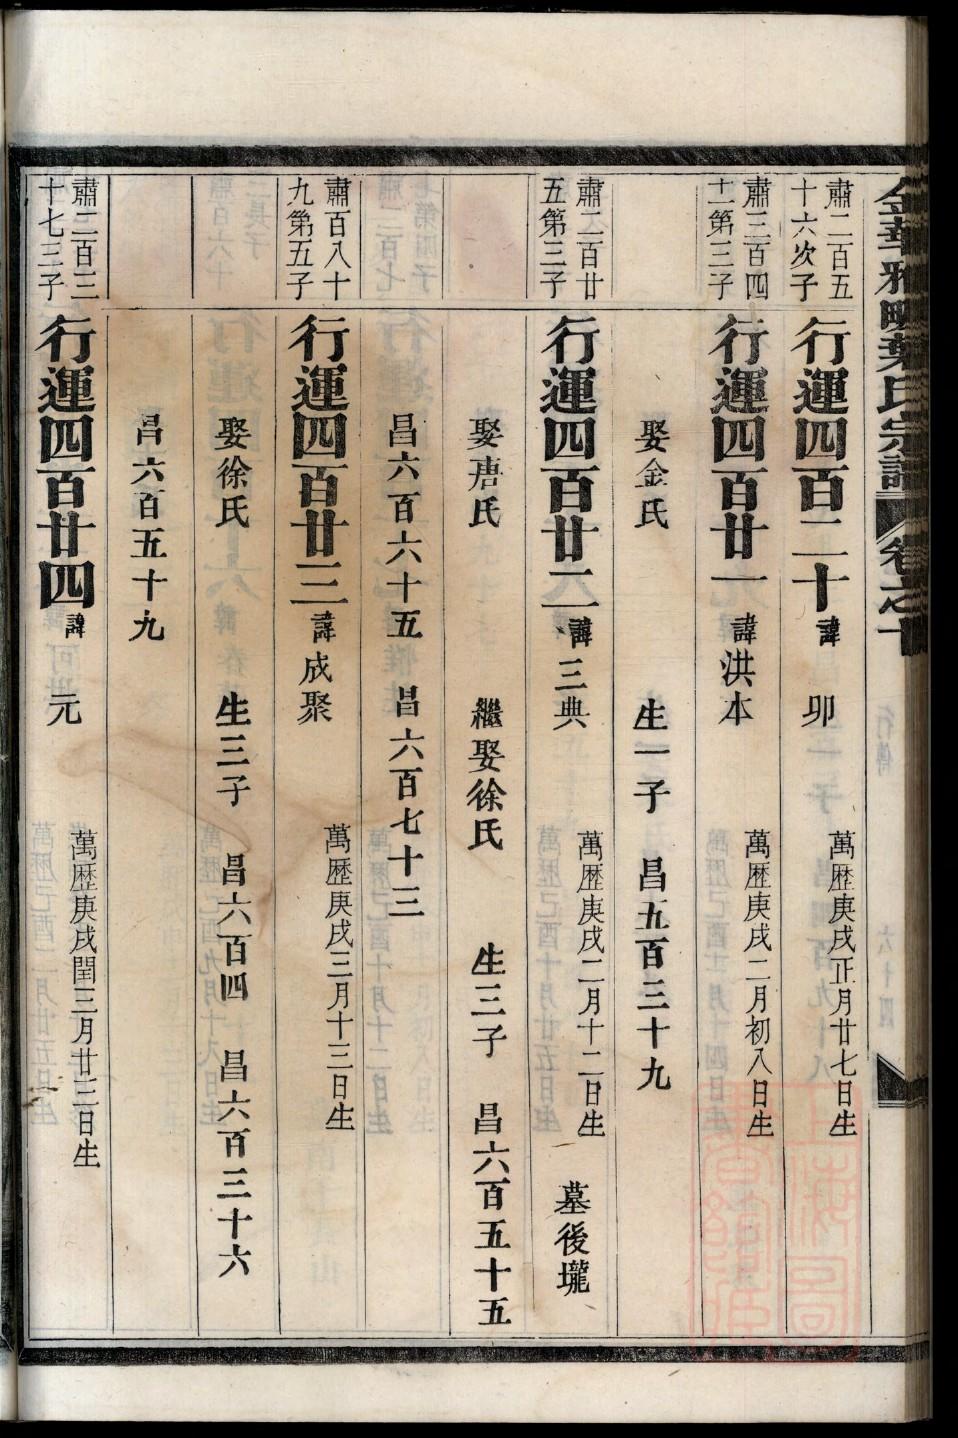 金華雅畈葉氏宗譜 卷之十
肅二百五十六次子
行運四百二十 諱 卯 萬歷庚戌正月廿七日生
肅三百四十一第三子
行運四百廿一 諱洪本 萬歷庚戌二月初八日生
娶金氏 生一子 昌五百三十九
肅二百廿五第三子
行運四百廿二 諱三典 萬歷庚戌二月十二日生 墓後壠
娶唐氏 繼娶徐氏 生三子 昌六百五十五
昌六百六十五 昌六百七十三
肅百八十九第五子
行運四百廿三 諱成聚 萬歷庚戌三月十三日生
娶徐氏 生三子 昌六百四 昌六百三十六
昌六百五十九
肅二百三十七三子
行運四百廿四 諱 元 萬歷庚戌閏三月廿三日生